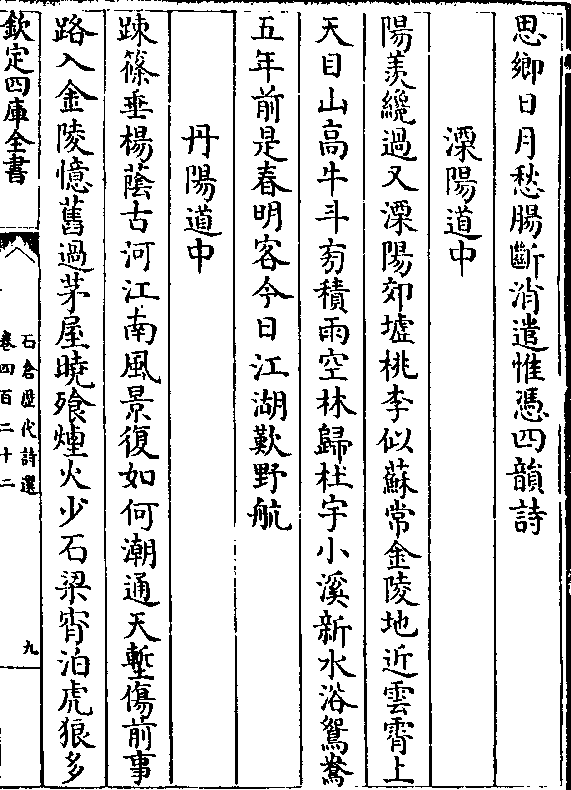 思鄉日月愁腸斷消遣惟憑四韻詩
溧陽道中
陽羨纔過又溧陽郊墟桃李似蘇常金陵地近雲霄上
天目山高牛斗旁積雨空林歸杜宇小溪新水浴鴛鴦
五年前是春明客今日江湖歎野航
丹陽道中
疎篠垂楊蔭古河江南風景復如何潮通天塹傷前事
路入金陵憶舊過茅屋曉飱煙火少石梁宵泊虎狼多
欽定四庫全書
石倉歷代詩選
卷四百二十二
九